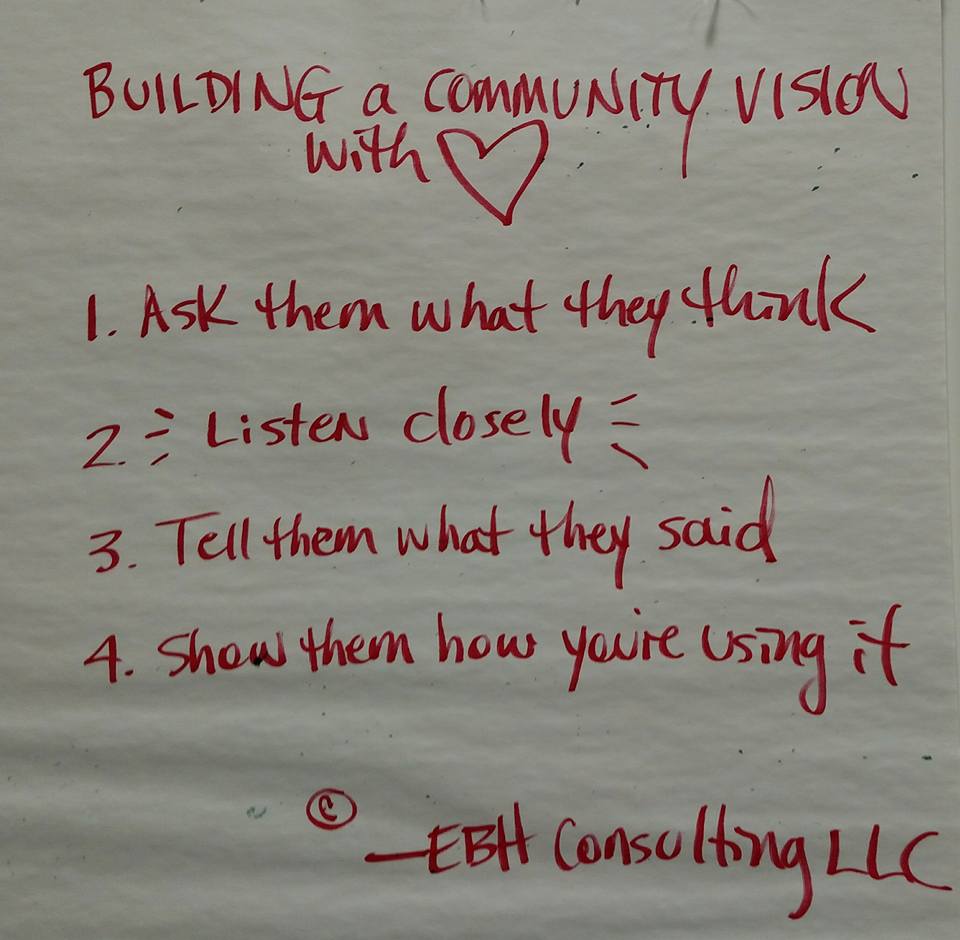 BUILDING a COMMUNITY VISION
with ♡
1. Ask them what they think
2. Listen closely
3. Tell them what they said
4. Show them how you're using it
© —EBH Consulting LLC